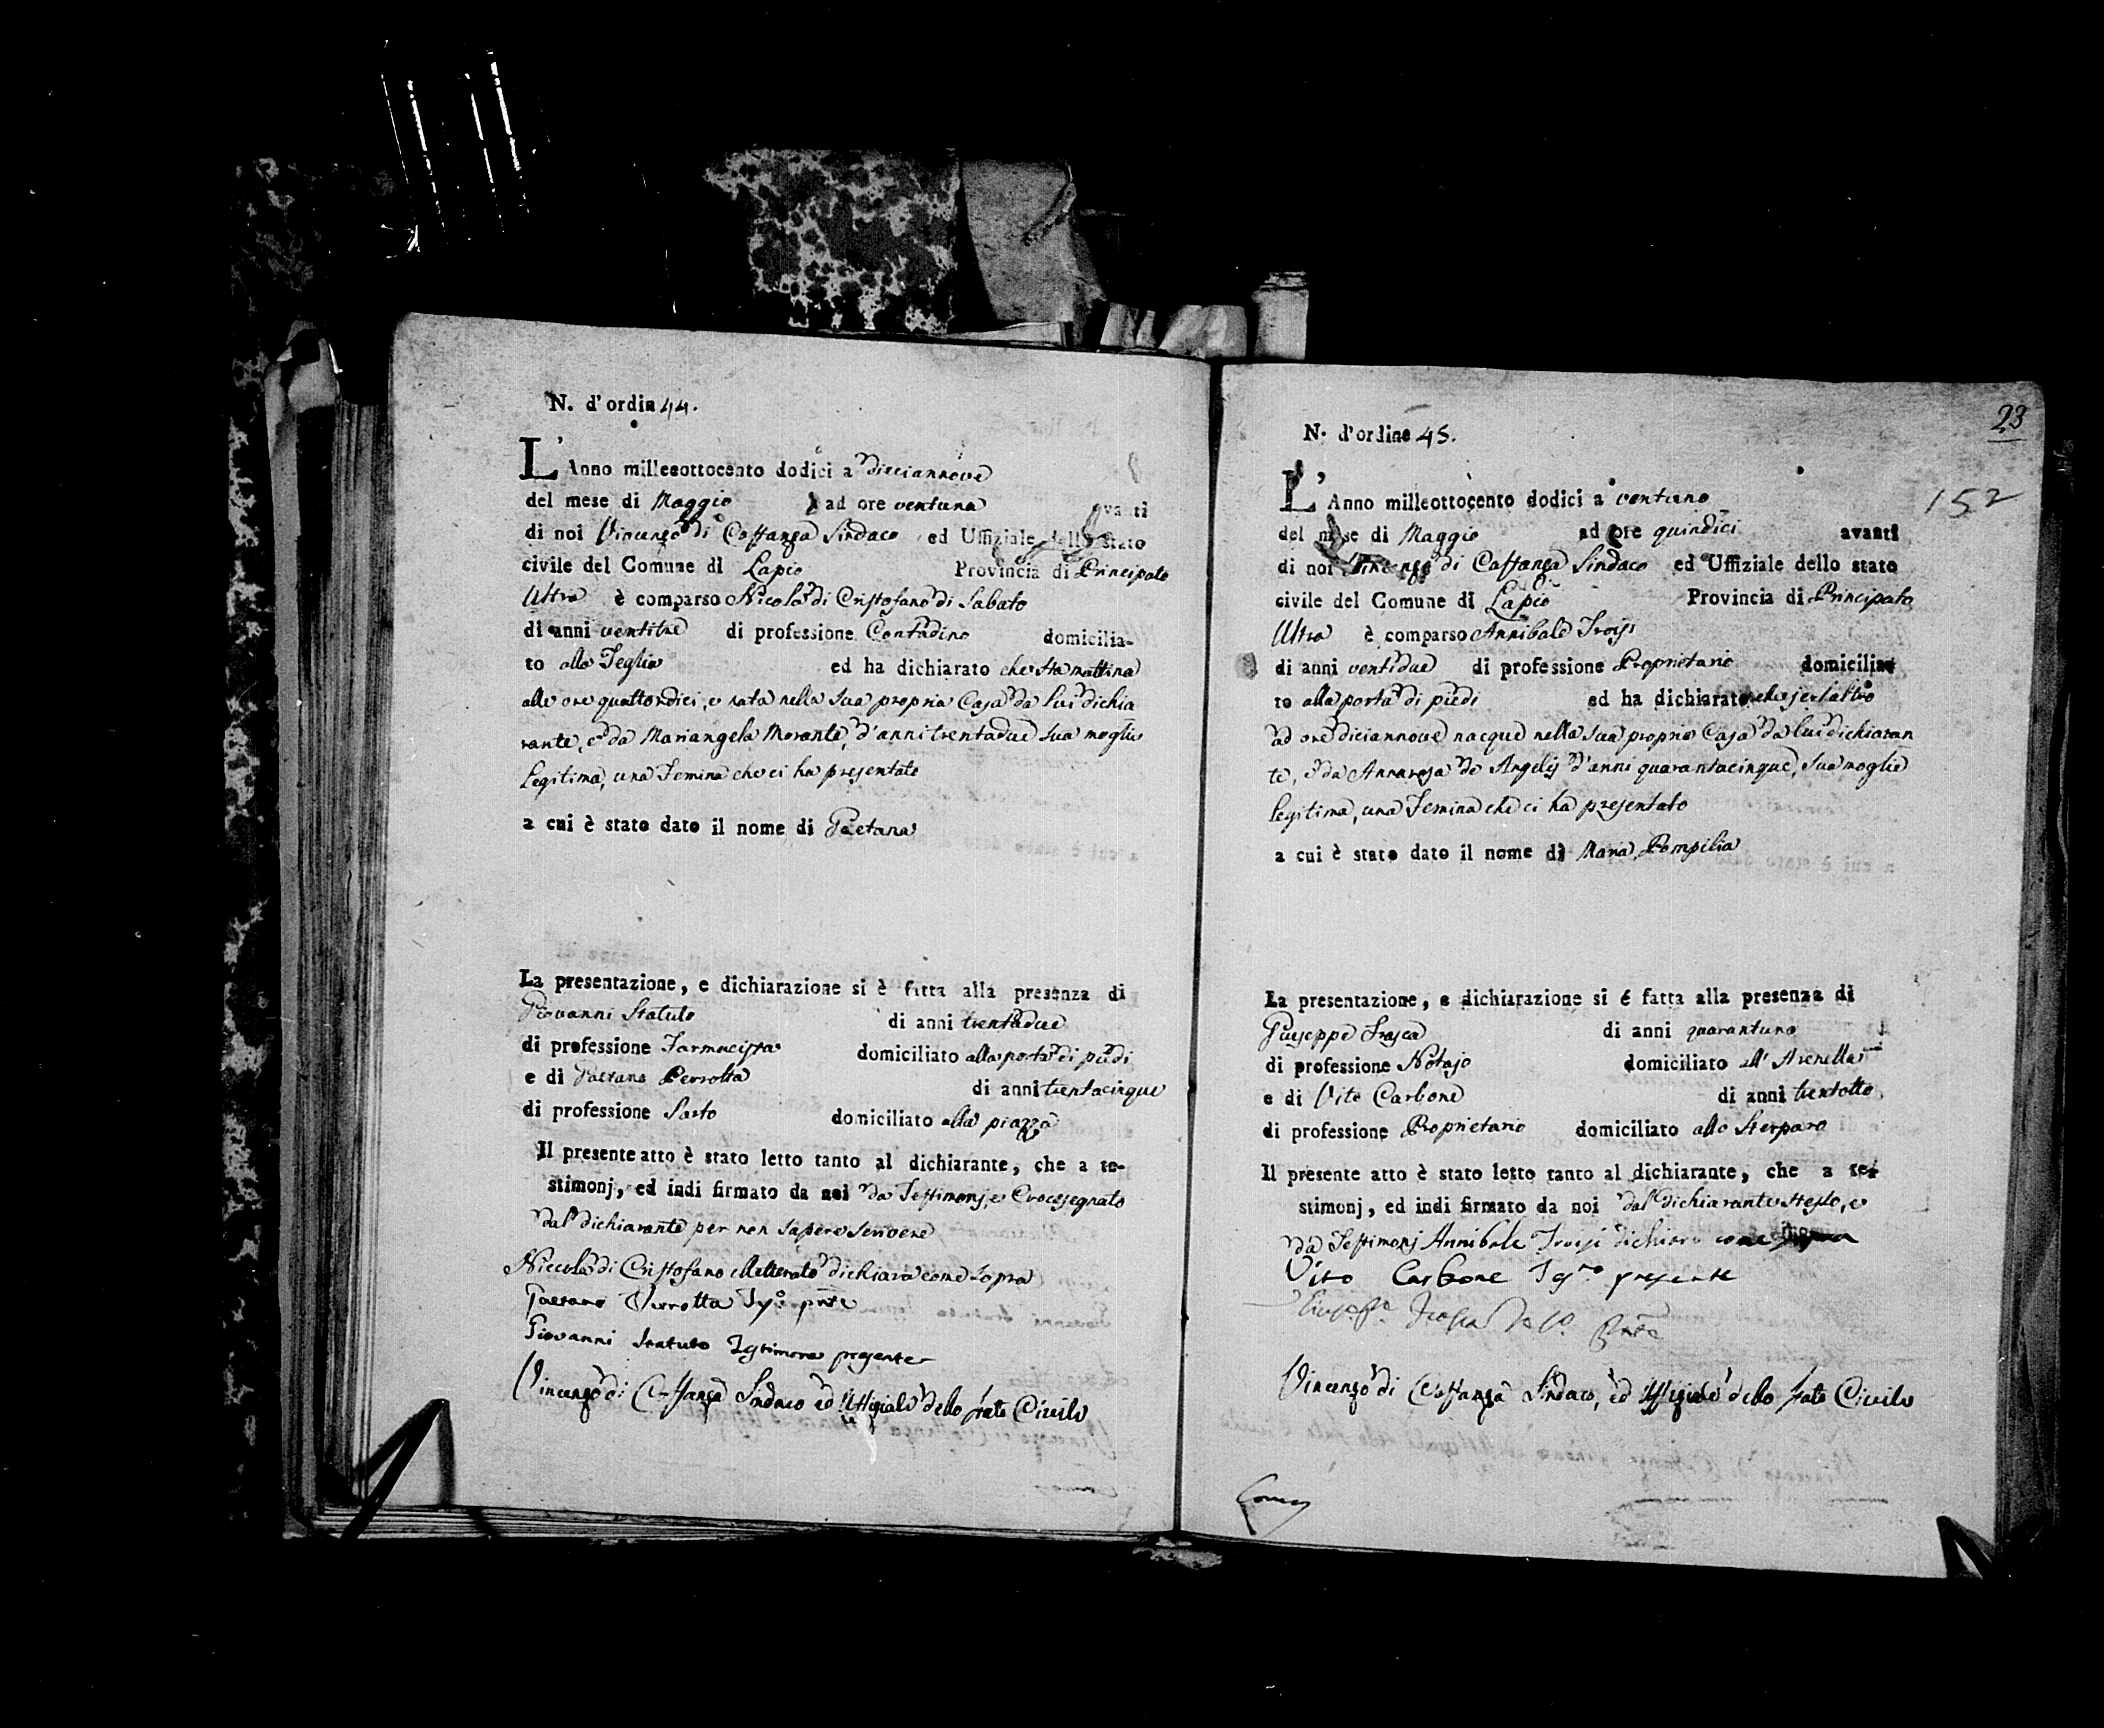 N. d'ordin 44.
L'Anno milleottocento dodici a dieciannove
del mese di Maggio ad ore ventuna avanti
di noi Vincenzo di Costanza Sindaco ed Uffiziale dello stato
civile del Comune di Lapio Provincia di Principato
Ultra è comparso Nicola di Cristofano di Sabato
di anni ventitre di professione Contadino domicilia-
to alla Teglia ed ha dichiarato che sta mattina
alle ore quattordici, e nata nella sua propria Casa da lui dichia
rante, e da Mariangela Morante, d'anni trentadue sua moglie
legitima, una Femina che ci ha presentato
a cui è stato dato il nome di Gaetana
La presentazione, e dichiarazione si è fatta alla presenza di
Giovanni Statuto di anni trentadue
di professione Farmacista domiciliato alla porta di piedi
e di Gaetano Perrotta di anni trentacinque
di professione Sarto domiciliato alla piazza
Il presente atto è stato letto tanto al dichiarante, che a te-
stimonj, ed indi firmato da noi da Testimonj, e Crocesegnato
dal dichiarante per non sapere scrivere
Niccola di Cristofano illetterato dichiara come sopra
Gaetano Perrotta Tes.o pnte
Giovanni Statuto Testimone presente
Vincenzo di Costanza Sindaco ed Uffiziale dello stato Civile
23
N. d'ordine 45.
152
L'Anno milleottocento dodici a ventuno
del mese di Maggio ad ore quindici avanti
di noi Vincenzo di Costanza Sindaco ed Uffiziale dello stato
civile del Comune di Lapio Provincia di Principato
Ultra è comparso Annibale Troisi
di anni ventidue di professione Proprietario domicilia-
to alla porta di piedi ed ha dichiarato che jerlattro
ad ore diciannove nacque nella sua propria Casa da lui dichiaran
te, e da Annarosa de Angelis d'anni quarantacinque, sua moglie
legitima, una Femina che ci ha presentato
a cui è stato dato il nome di Maria Pompilia
La presentazione, e dichiarazione si è fatta alla presenza di
Giuseppe Frasca di anni quarantuno
di professione Notajo domiciliato all' Arenella
e di Vito Carbone di anni trentotto
di professione Proprietario domiciliato allo Sterparo
Il presente atto è stato letto tanto al dichiarante, che a te-
stimonj, ed indi firmato da noi dal dichiarante stesso, e
da Testimonj Annibale Troisi dichiaro come sopra
Vito Carbone Tes.mo presente
Giuseppe Frasca Tes.o Pnte
Vincenzo di Costanza Sindaco, ed Uffiziale dello stato Civile